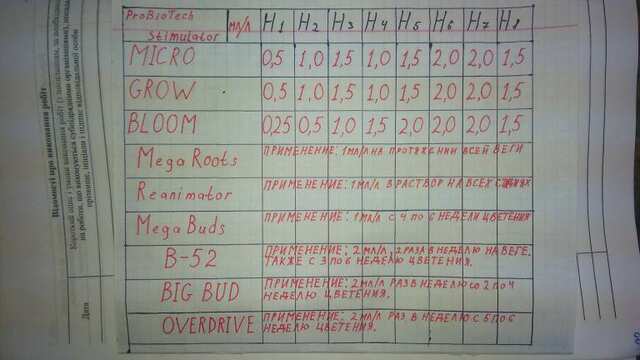 ProBioTech
Stimulator мл/л H1 H2 H3 H4 H5 H6 H7 H8
MICRO 0,5 1,0 1,5 1,0 1,5 2,0 2,0 1,5
GROW 0,5 1,0 1,5 1,0 1,5 2,0 2,0 1,5
BLOOM 0,25 0,5 1,0 1,5 2,0 2,0 2,0 1,5
Mega Roots ПРИМЕНЕНИЕ: 1мл/л НА ПРОТЯЖЕНИИ ВСЕЙ ВЕГИ
Reanimator ПРИМЕНЕНИЕ: 1мл/л В РАСТВОР НА ВСЕХ
Mega Buds ПРИМЕНЕНИЕ: 1 мл/л С 4 ПО 6 НЕДЕЛИ ЦВЕТЕНИЯ
B-52 ПРИМЕНЕНИЕ: 2 мл/л, 2 РАЗА В НЕДЕЛЮ НА ВЕГЕ.
ТАКЖЕ С 3 ПО 6 НЕДЕЛЮ ЦВЕТЕНИЯ.
BIG BUD ПРИМЕНЕНИЕ: 2 мл/л РАЗ В НЕДЕЛЮ СО 2 ПО 4
НЕДЕЛЮ ЦВЕТЕНИЯ.
OVERDRIVE ПРИМЕНЕНИЕ: 2 мл/л РАЗ В НЕДЕЛЮ С 5 ПО 6
НЕДЕЛЮ ЦВЕТЕНИЯ.
Відомості про виконання робіт
Короткий опис і умови виконання робіт (з посиланням, за необхідності,
на роботи, що виконуються субпідрядними організаціями),
прізвище, ініціали і підпис відповідальної особи
Дата